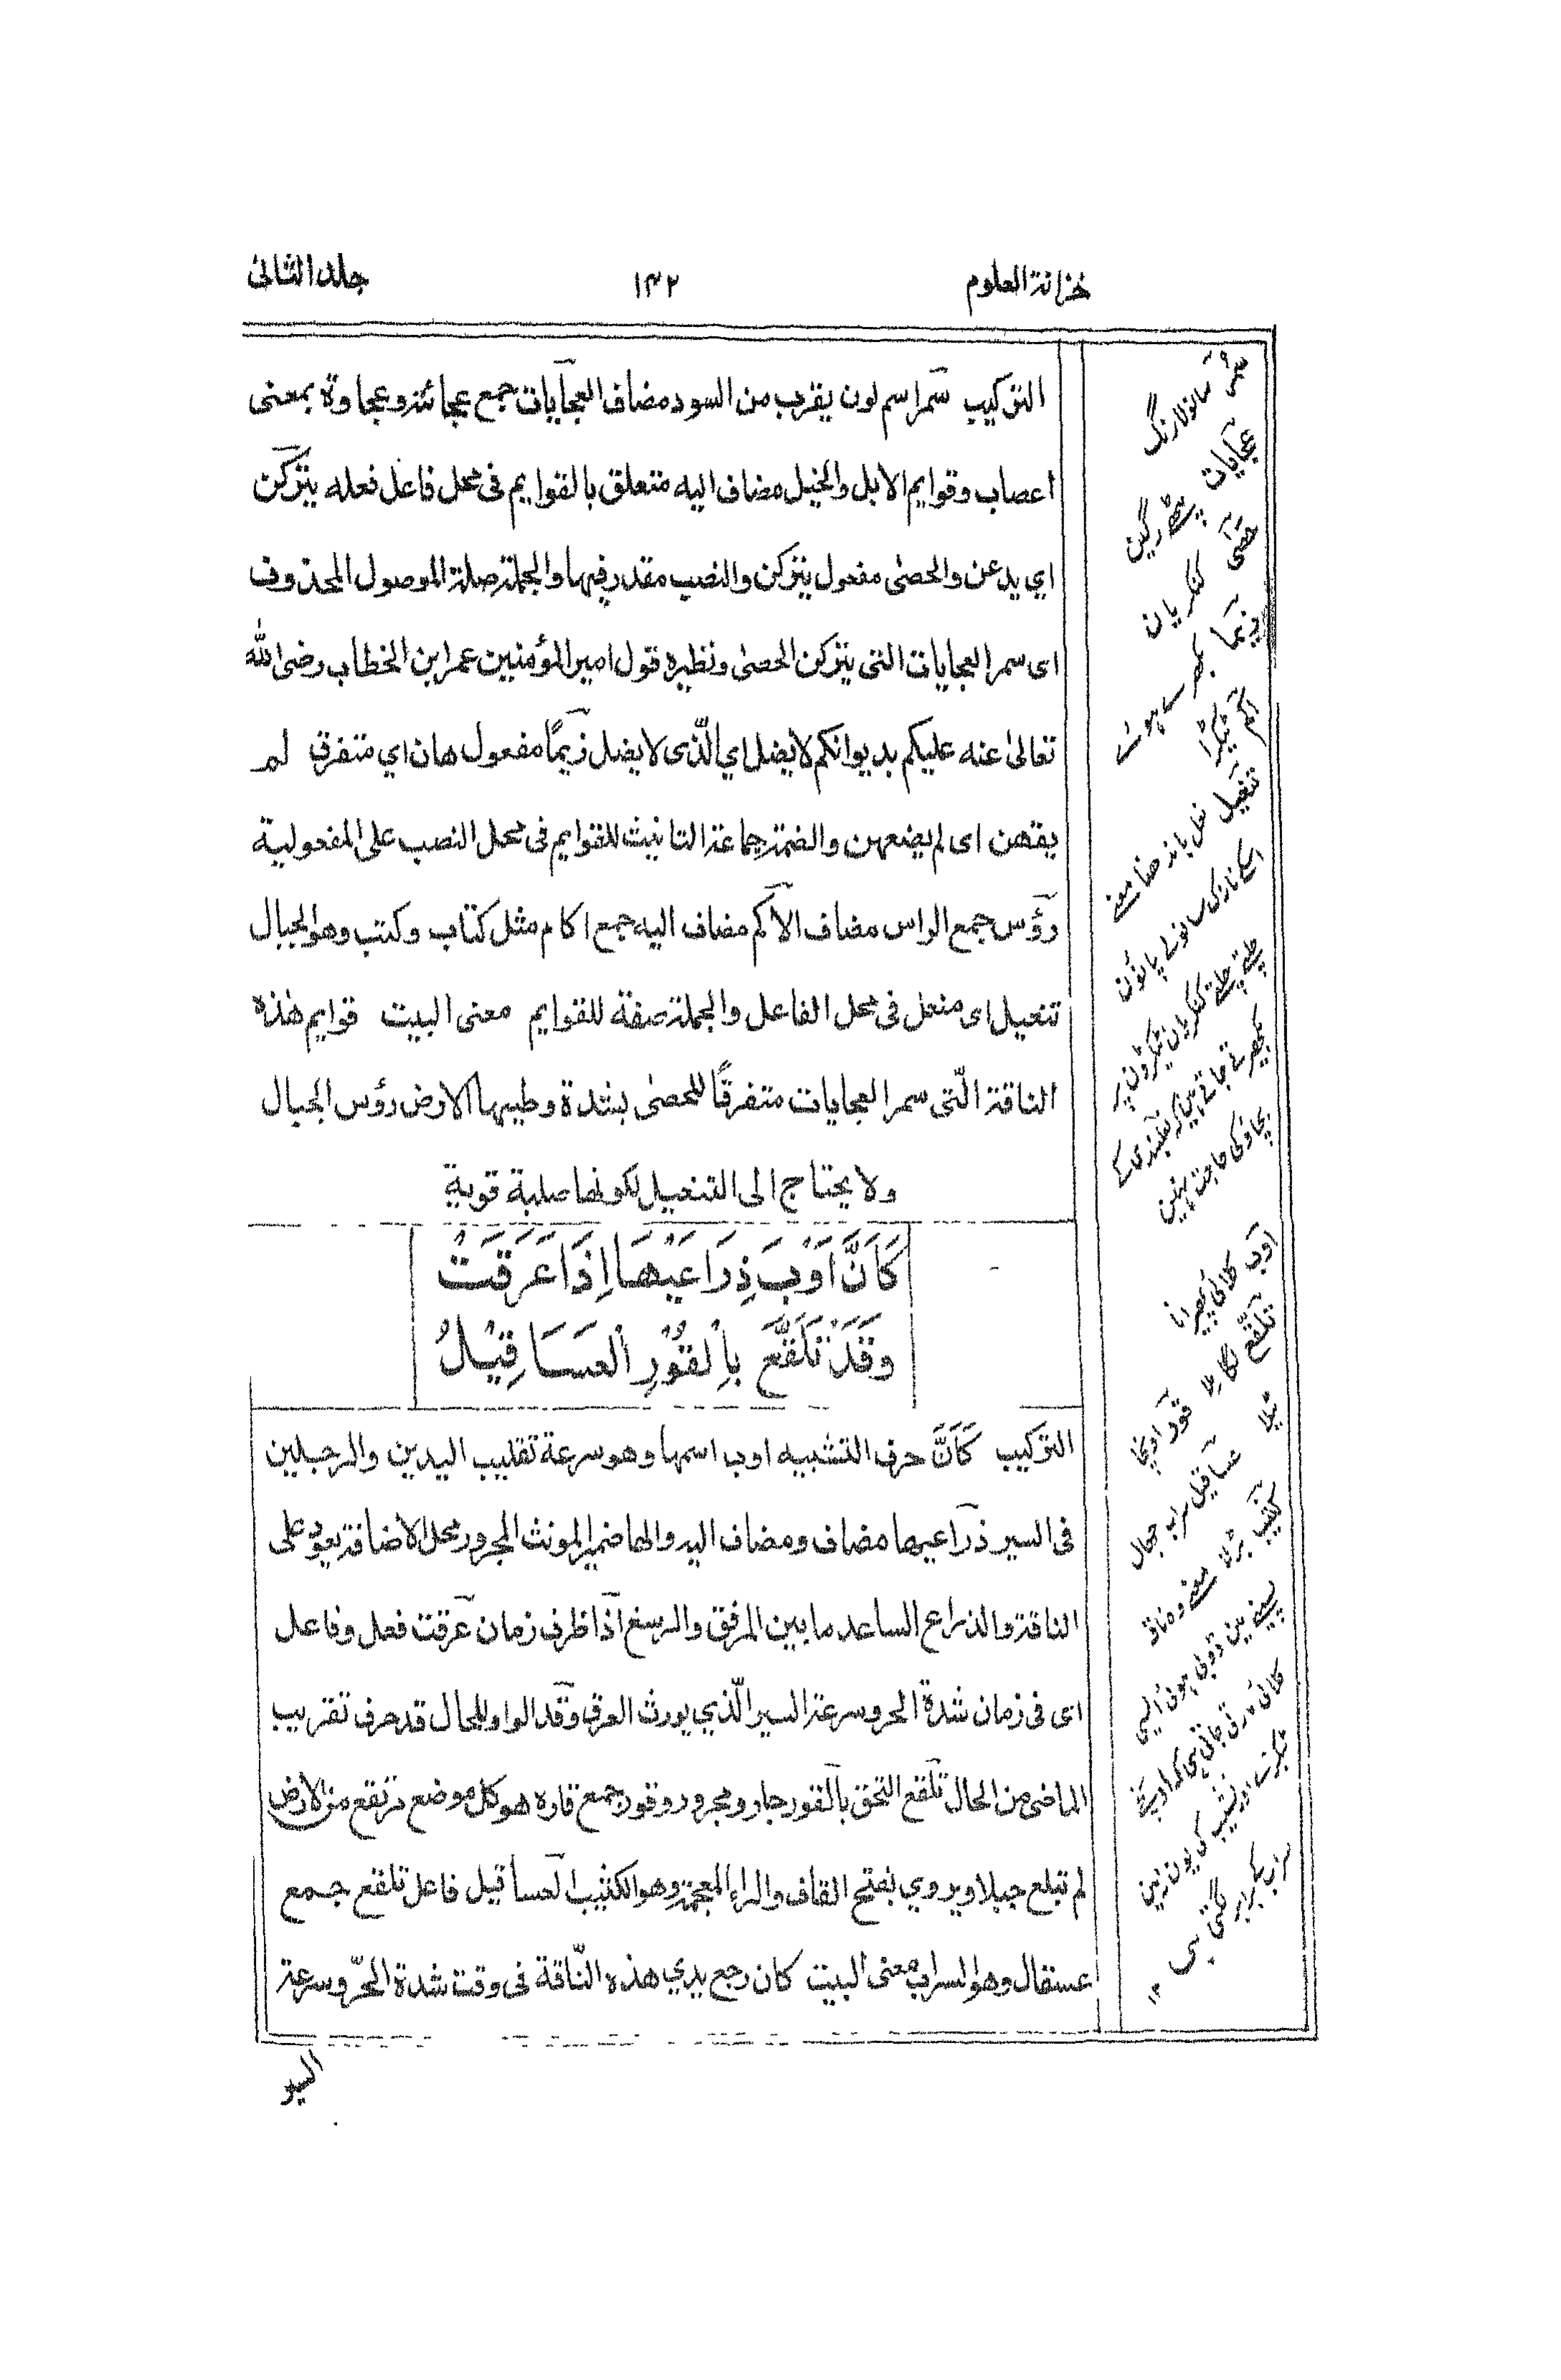 خزانة العلوم ١٣٢ جلد الثانى
التركيب سمر اسم لون يقرب من السود مضاف العجايات جمع عجائة وعجاوة بمعنى
اعصاب وقوايم الابل والخيل مضاف اليه متعلق بالقوايم فى محل فاعل فعله يتركن
اي يدعن والحصٰى مفعول يتركن والنصب مقدر فيها والجملة صلة الموصول المحذوف
اى سمر العجايات التى يتركن الحصٰى ونظيره قول امير المؤمنين عمر ابن الخطاب رضى الله
تعالىٰ عنه عليكم بديوانكم لا يضل اي الّذى لا يضل زيمًا مفعول هان اي متفرق لم
يقهن اى لم يضعهن والضمة جماعة التانيث للقوايم فى محل النصب على المفعولية
رؤس جمع الراس مضاف الاكم مضاف اليه جمع اكام مثل كتاب وكتب وهو الجبال
تنعيل اى منعل فى محل الفاعل والجملة صفة للقوايم معنى البيت قوايم هٰذه
الناقة الّتى سمر العجايات متفرقًا للحصٰى بشدة وطيبها الارض رؤس الجبال
ولا يحتاج الى التنعيل لكونها صلبة قوية
كَاَنَّ اَوْبَ ذِرَاعَيْهَا اِذَا عَرَقَتْ
وَقَدْ تَلَقَّعَ بِالْقُوْرِ الْعَسَاقِيْلُ
التركيب كَاَنَّ حرف التشبيه اوب اسمها وهو سرعة تقليب اليدين والرجلين
فى السير ذراعيها مضاف ومضاف اليه والها ضمير المونث المجرور محل الاضافة يعود على
الناقة والذراع الساعد ما بين المرفق والرسغ اذا ظرف زمان عرقت فعل وفاعل
اى فى زمان شدة الحر وسرعة السير الّذي يورث العرق وقد الواو للحال قد حرف تقريب
الماضى من الحال تلقع التحق بالقور جار ومجرور وقور جمع قاره هو كل موضع ترتقع من الارض
لم تبلع جبلا ويروي بفتح القاف والراء المعجمة وهو الكثيب العساقيل فاعل تلقع جمع
عسقال وهو السراب معنى البيت كان رجع يدي هذه النّاقة فى وقت شدة الحرّ وسرعة
السير
سمر سانولا رنگ
عجایات پٹھے رگین
حصٰی کنکریان
زیما بکھرے ہوئے
اکم ٹیکرا
تنعیل نعل باندھنا معنے
اسکے نازک سانولے پانؤن
چلتے چلتے کنکریان ٹیکرون پر
بکھیرتے جاتے ہین کہ نعلبندی کے
بچاؤ کی حاجت نہین
اوب کلائی پھیرانا
تلقع لگا ملا قور اونچا
ٹیلا عساقیل سراب
معنے وہ ناقہ
پسینے مین ڈوبی ہوئی ایسی
کلائی مارتی جاتی ہی کہ اونچے